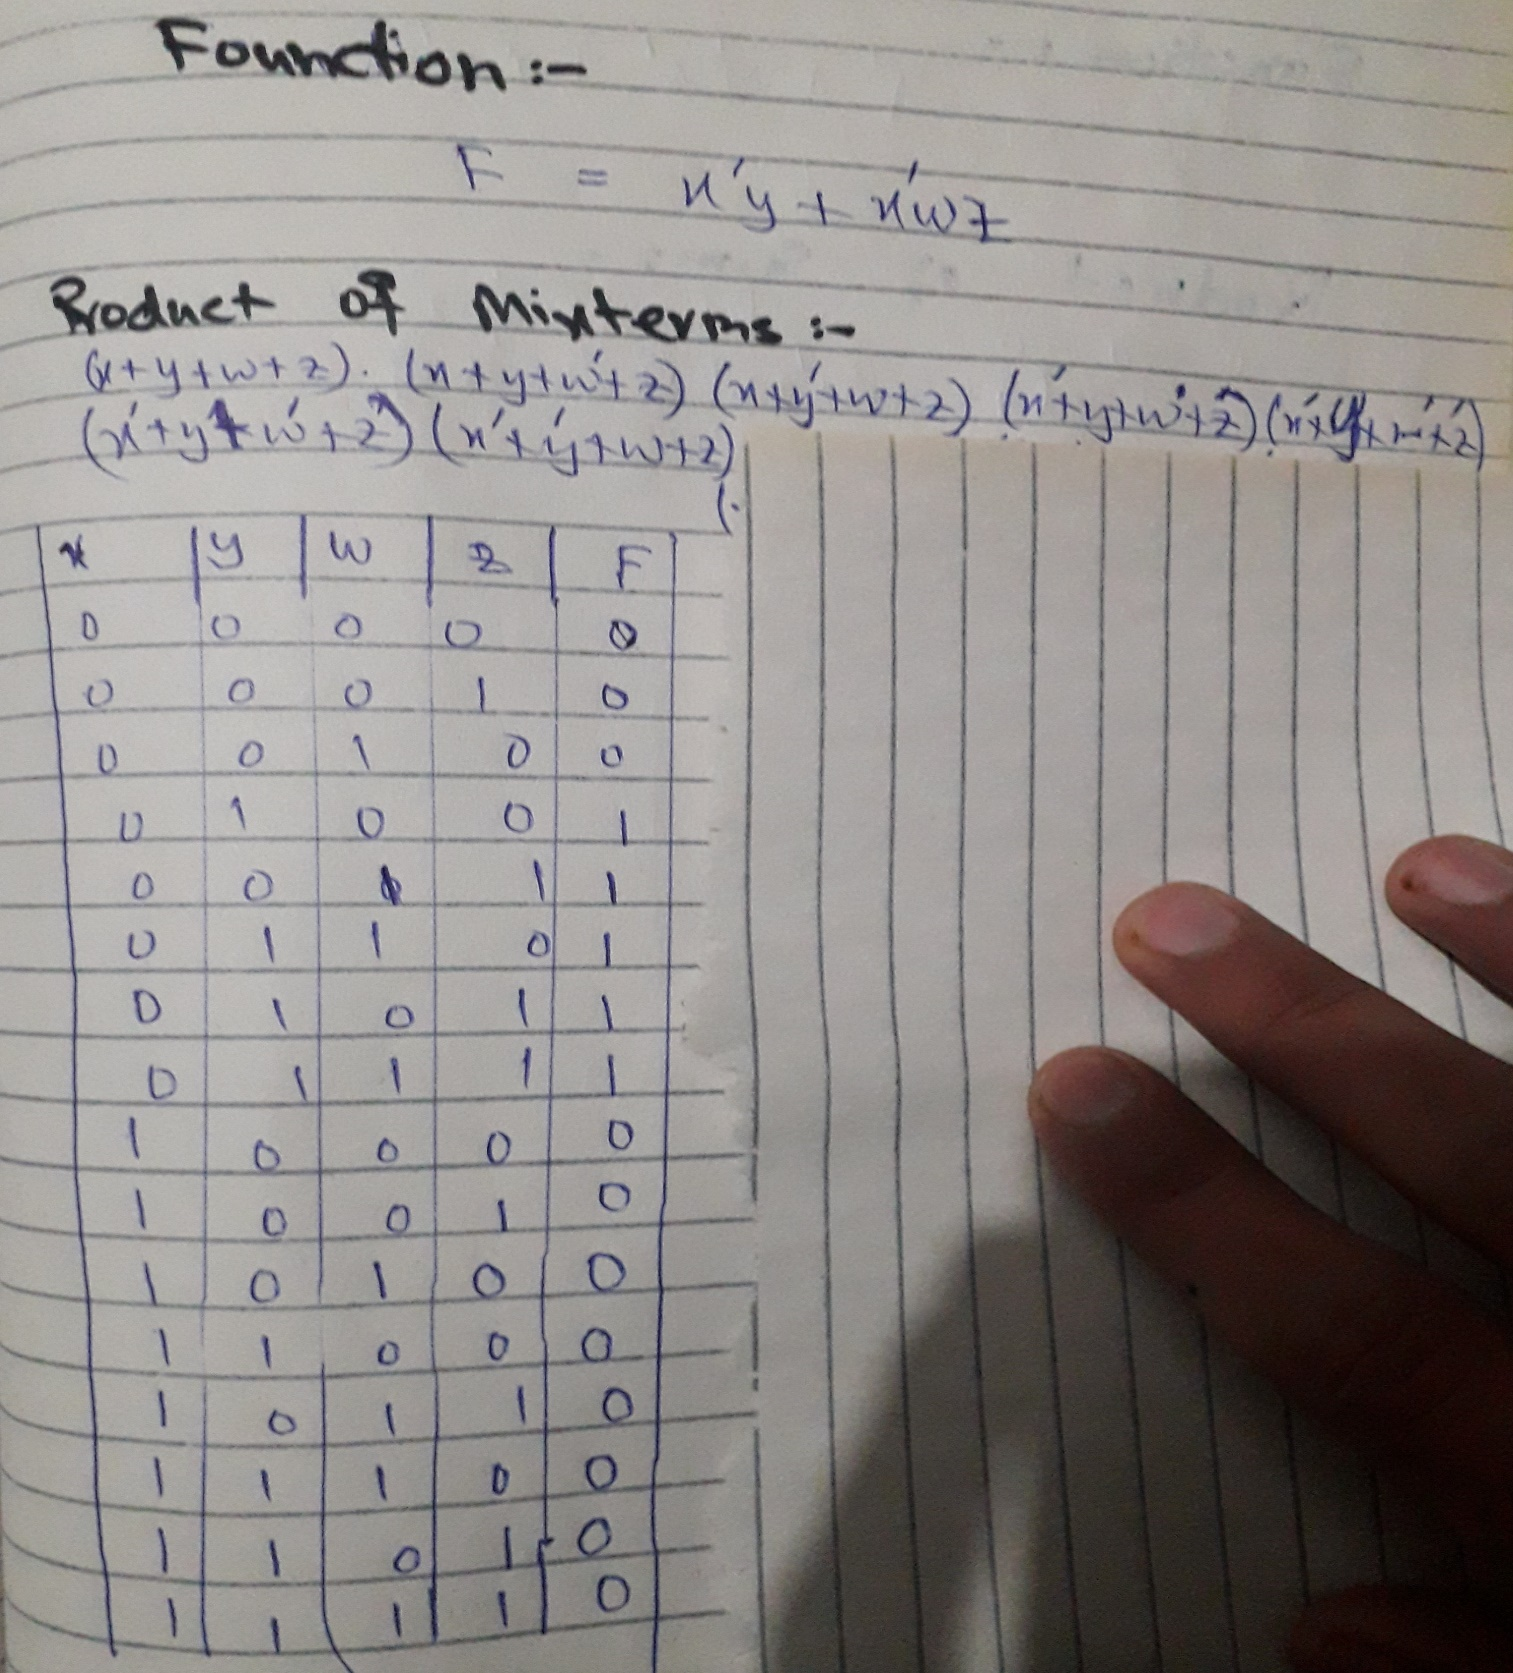 Founction :-
F = x'y + x'wz
Product of Mixterms :-
(x+y+w+z). (x+y+w'+z) (x+y'+w+z) (x'+y+w'+z') (x'+y'+w'+z')
(x'+y+w'+z') (x'+y'+w+z)
(.
x y w z F
0 0 0 0 0
0 0 0 1 0
0 0 1 0 0
0 1 0 0 1
0 0 1 1 1
0 1 1 0 1
0 1 0 1 1
0 1 1 1 1
1 0 0 0 0
1 0 0 1 0
1 0 1 0 0
1 1 0 0 0
1 0 1 1 0
1 1 1 0 0
1 1 0 1 0
1 1 1 1 0